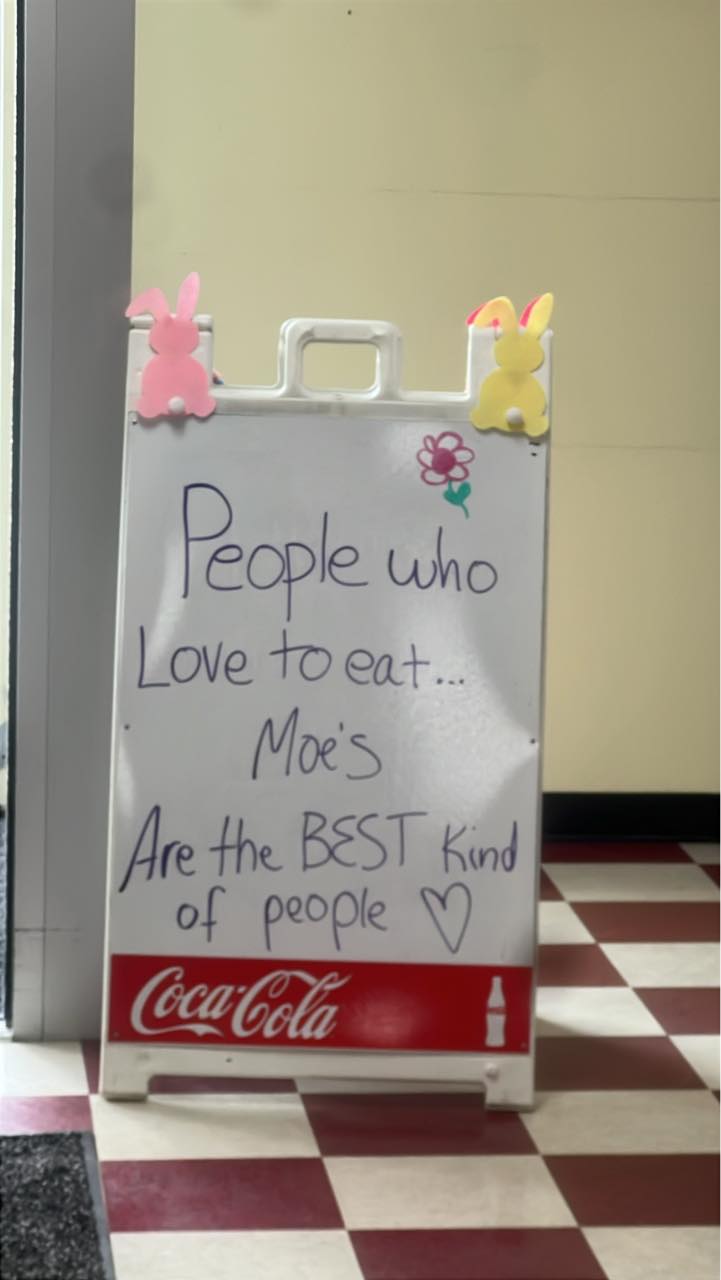 People who
Love to eat...
Moe's
Are the BEST Kind
of people ♡
Coca-Cola